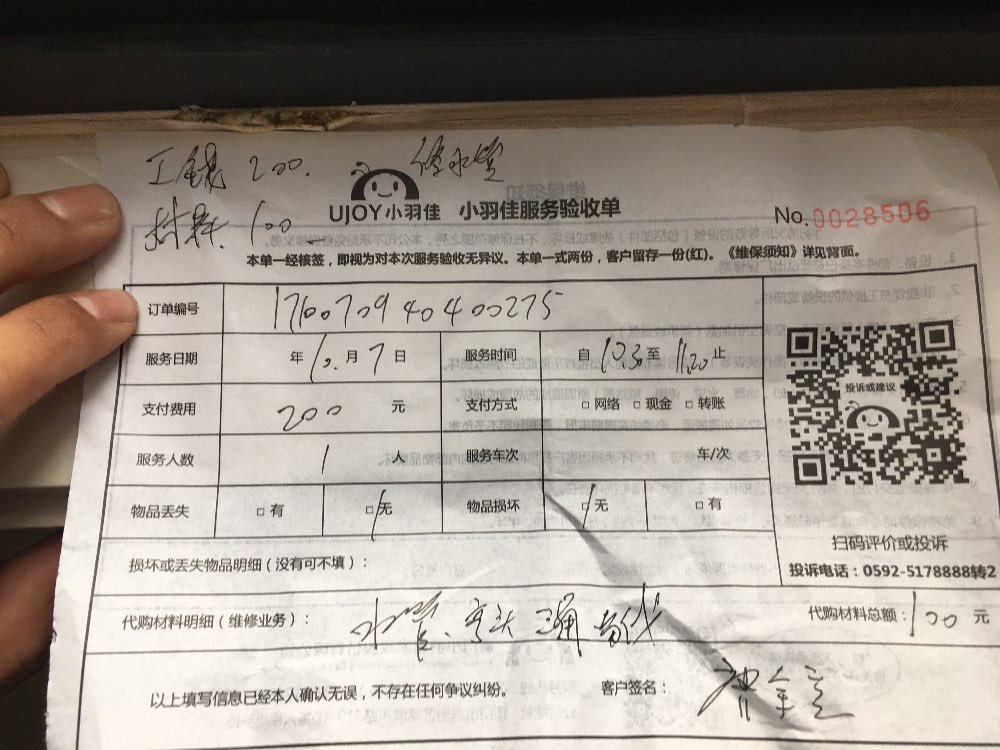 工钱 200. 修水管
材料 100
UJOY小羽佳 小羽佳服务验收单
No.0028506
本单一经核签，即视为对本次服务验收无异议。本单一式两份，客户留存一份(红)。《维保须知》详见背面。
订单编号 1760070940400275
服务日期 年 10.月 7 日 服务时间 自 10.3 至 11.20 止
支付费用 200 元 支付方式 □网络 □现金 □转账
服务人数 1 人 服务车次 车/次
物品丢失 □有 □无 物品损坏 □无 □有
损坏或丢失物品明细（没有可不填）：
投诉或建议
扫码评价或投诉
投诉电话：0592-5178888转2
代购材料明细（维修业务）： 水管、弯头 三通 代购材料总额：100 元
以上填写信息已经本人确认无误，不存在任何争议纠纷。 客户签名：